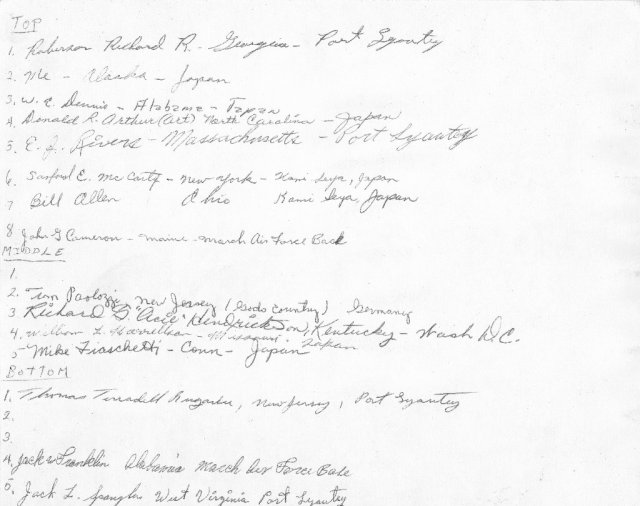 TOP
1. Roberson Richard R. - Georgia - Port Lyautey
2. Me - Alaska - Japan
3. W. E. Dennis - Alabama - Japan
4. Donald R. Arthur (Art) North Carolina - Japan
5. E. J. Rivers - Massachusetts - Port Lyautey
6. Sanford E. McCarty - New York - Kami Seya, Japan
7 Bill Allen Ohio Kami Seya Japan
8 John G Cameron - Maine - March Air Force Base
MIDDLE
1.
2. Tom Paolozzi, New Jersey (Gods Country) Germany
3 Richard G. "Acie" Hendrickson, Kentucky - Wash D.C.
4. William L. - Missouri - Japan
5 Mike Fiaschetti - Conn - Japan
BOTTOM
1. Thomas, New Jersey, Port Lyautey
2.
3.
4. Jack W Franklin Alabama March Air Force Base
5. Jack L. Spangler West Virginia Port Lyautey